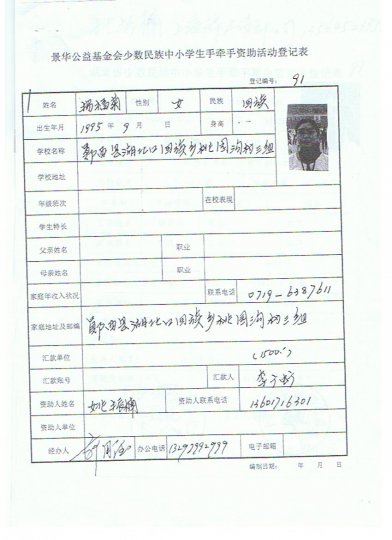 景华公益基金会少数民族中小学生手牵手资助活动登记表
登记编号: 91
姓名 性别 女 民族 回族
出生年月 1995 年 9 月 日 身高 一
学校名称 郧西县湖北口回族乡 沟村三组
学校地址
年级班次 在校表现
学生特长
父亲姓名 职业
母亲姓名 职业
家庭年收入状况 联系电话 0719-6387611
家庭地址及邮编 郧西县湖北口回族乡 沟村三组
汇款单位 (1500.)
汇款账号 汇款人
资助人姓名 姚 资助人联系电话 13601716301
资助人单位
经办人 办公电话 13297992999 电子邮箱
编制日期: 年 月 日